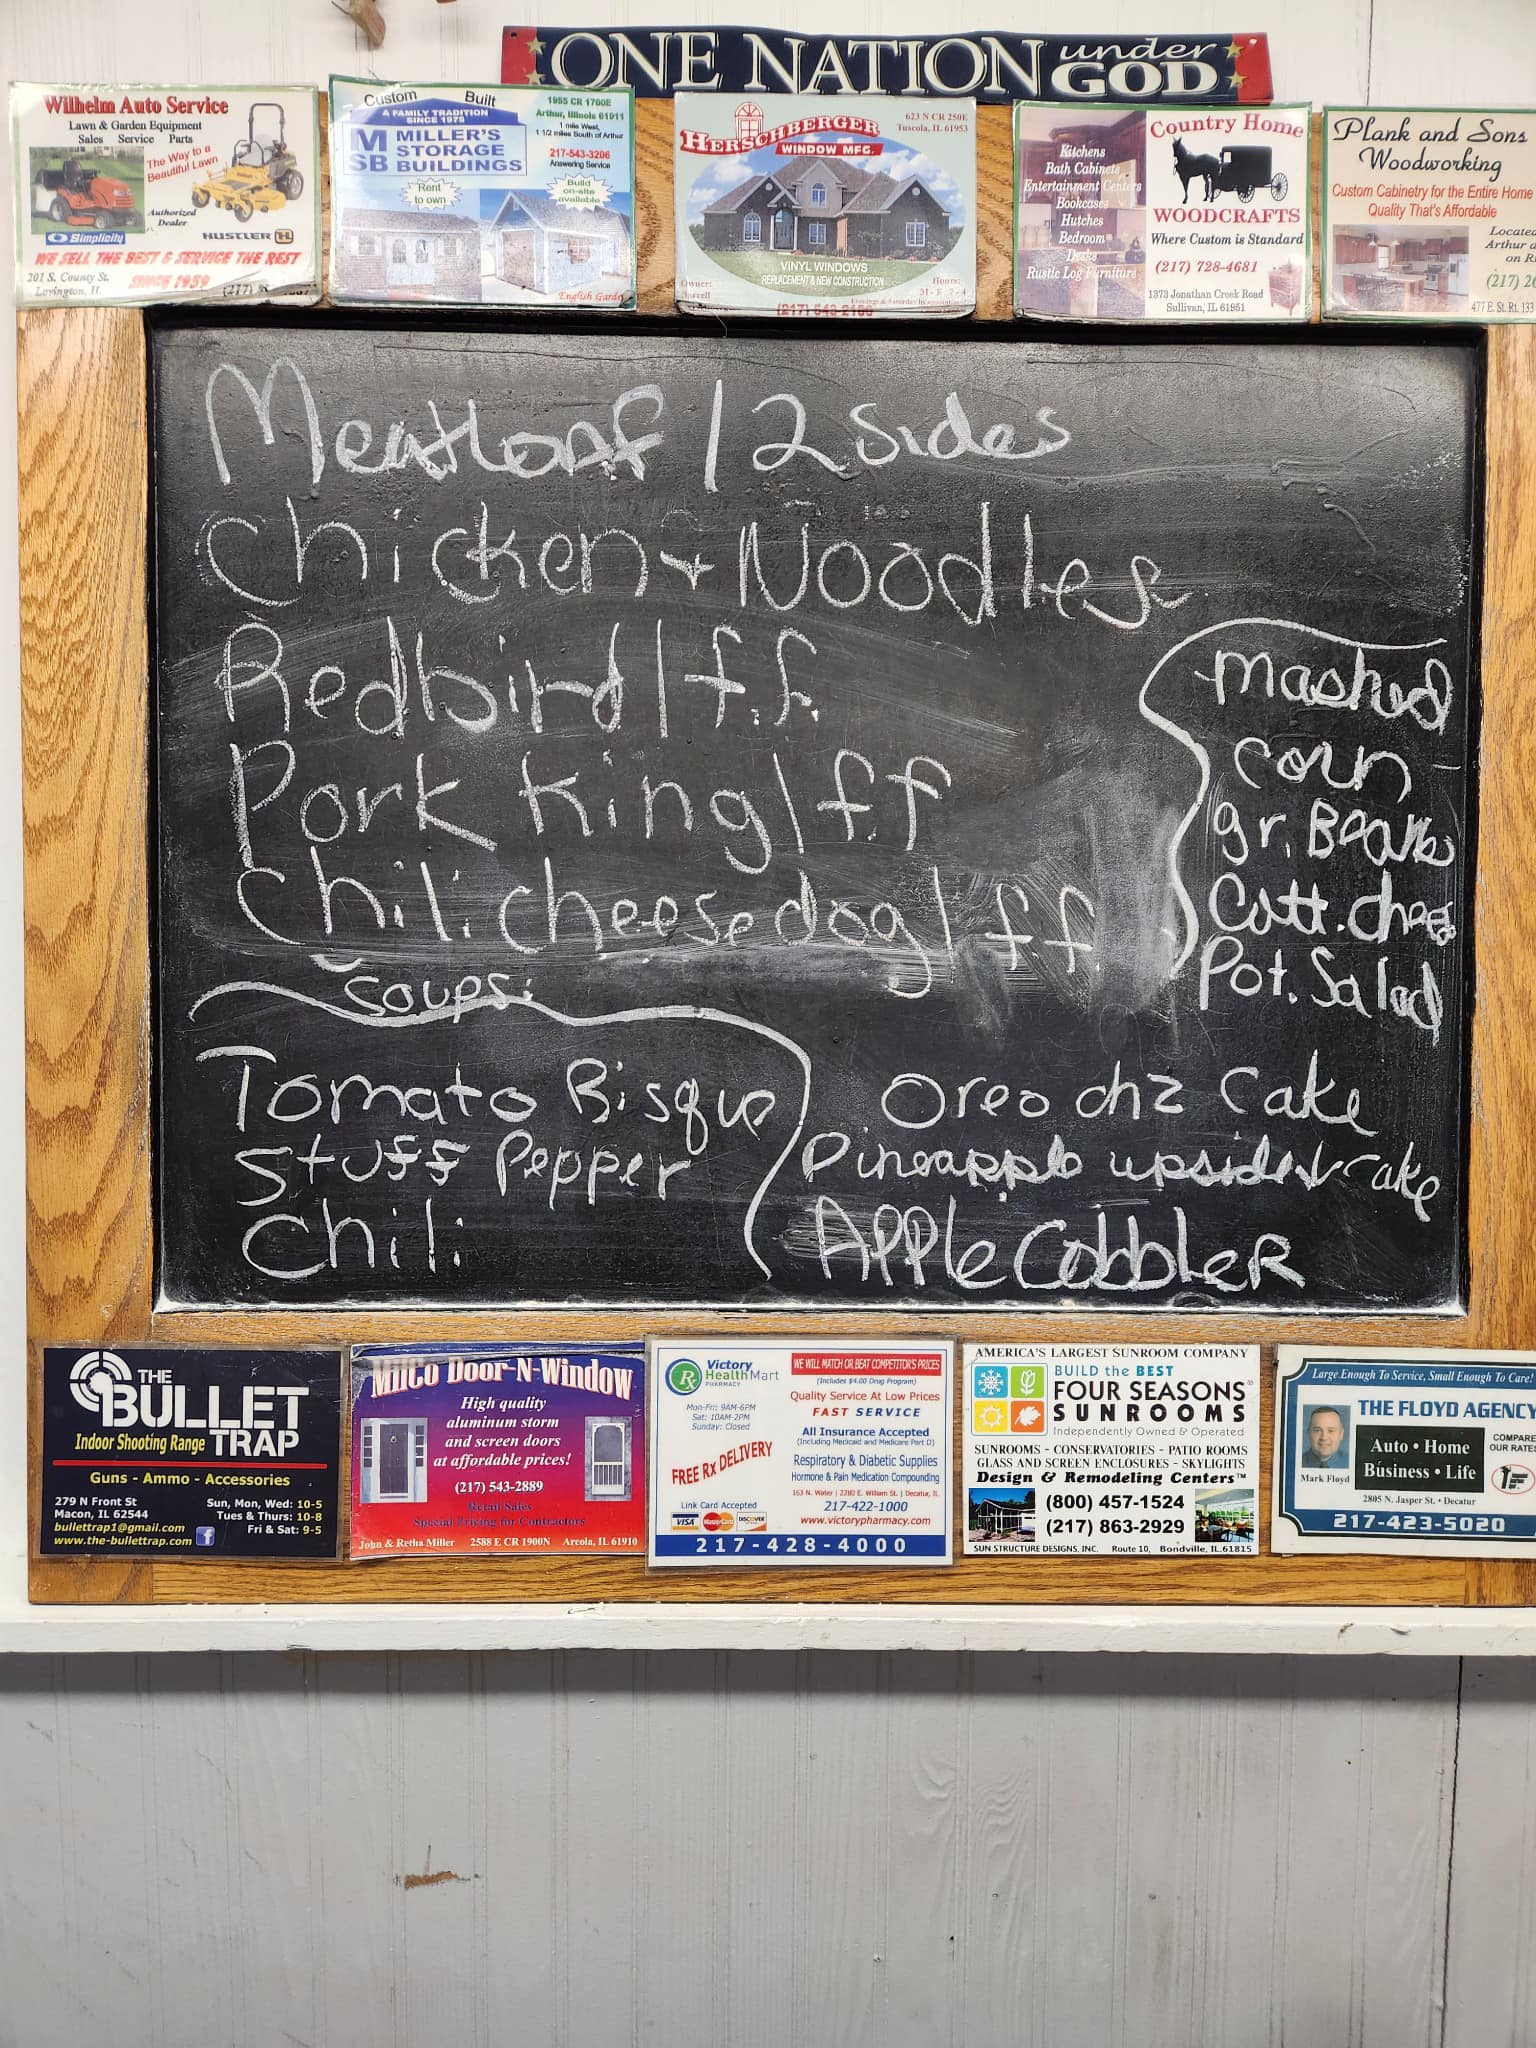 ONE NATION under GOD
Wilhelm Auto Service
Lawn & Garden Equipment
Sales Service Parts
The Way to a
Beautiful Lawn
Authorized
Dealer
Simplicity
HUSTLER
WE SELL THE BEST & SERVICE THE REST
201 S. County St.
Lovington, IL
SINCE 1959
(217)
Custom Built
A FAMILY TRADITION
SINCE 1975
MSB MILLER'S
STORAGE
BUILDINGS
1955 CR 1700E
Arthur, Illinois 61911
1 mile West,
1 1/2 miles South of Arthur
217-543-3206
Answering Service
Rent
to own
Build
on-site
available
English
HERSCHBERGER
WINDOW MFG.
623 N CR 250E
Tuscola, IL 61953
VINYL WINDOWS
REPLACEMENT & NEW CONSTRUCTION
Owner:
Hours:
M - F: 7 - 4
Country Home
WOODCRAFTS
Kitchens
Bath Cabinets
Entertainment Centers
Bookcases
Hutches
Bedroom
Desks
Rustic Log Furniture
Where Custom is Standard
(217) 728-4681
1373 Jonathan Creek Road
Sullivan, IL 61951
Plank and Sons
Woodworking
Custom Cabinetry for the Entire Home
Quality That's Affordable
Located
Arthur
on
(217)
477 E. St. Rt. 133
Meatloaf / 2 sides
Chicken & Noodles
Redbird / f.f.
Pork King / f.f
Chili cheese dog / f f
mashed
corn
gr. Beans
Cott. chees
Pot. Salad
Soups:
Tomato Bisque
Stuff Pepper
Chili
Oreo chz Cake
Pineapple upsidedown Cake
Apple Cobbler
THE
BULLET
TRAP
Indoor Shooting Range
Guns - Ammo - Accessories
279 N Front St
Macon, IL 62544
bullettrap1@gmail.com
www.the-bullettrap.com
Sun, Mon, Wed: 10-5
Tues & Thurs: 10-8
Fri & Sat: 9-5
Milco Door-N-Window
High quality
aluminum storm
and screen doors
at affordable prices!
(217) 543-2889
Retail Sales
Special Pricing for Contractors
John & Retha Miller 2588 E CR 1900N Arcola, IL 61910
Victory
HealthMart
PHARMACY
Mon-Fri: 9AM-6PM
Sat: 10AM-2PM
Sunday: Closed
FREE Rx DELIVERY
Link Card Accepted
VISA MasterCard DISCOVER
WE WILL MATCH OR BEAT COMPETITOR'S PRICES
(Includes $4.00 Drug Program)
Quality Service At Low Prices
FAST SERVICE
All Insurance Accepted
(Including Medicaid and Medicare Part D)
Respiratory & Diabetic Supplies
Hormone & Pain Medication Compounding
163 N. Water | 2280 E. William St. | Decatur, IL
217-422-1000
www.victorypharmacy.com
217-428-4000
AMERICA'S LARGEST SUNROOM COMPANY
BUILD the BEST
FOUR SEASONS
SUNROOMS
Independently Owned & Operated
SUNROOMS - CONSERVATORIES - PATIO ROOMS
GLASS AND SCREEN ENCLOSURES - SKYLIGHTS
Design & Remodeling Centers™
(800) 457-1524
(217) 863-2929
SUN STRUCTURE DESIGNS, INC. Route 10, Bondville, IL.61815
Large Enough To Service, Small Enough To Care!
THE FLOYD AGENCY
Auto • Home
Business • Life
COMPARE
OUR RATE
Mark Floyd
2805 N. Jasper St. • Decatur
217-423-5020